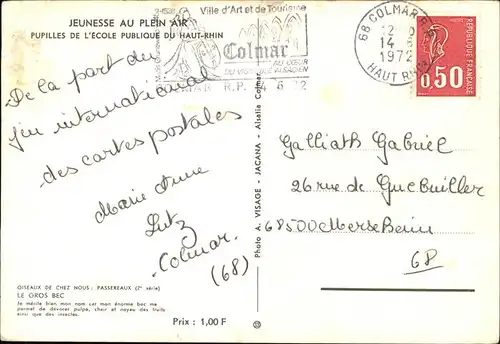 JEUNESSE AU PLEIN AIR
PUPILLES DE L'ÉCOLE PUBLIQUE DU HAUT-RHIN
Ville d'Art et de Tourisme
Colmar
AU CŒUR
DU VIGNOBLE ALSACIEN
COLMAR R.P.
68 COLMAR R.P.
14-6
1972
HAUT RHIN
REPUBLIQUE FRANÇAISE
0,50
De la part du
jeu international
des cartes postales
Marie Anne
Lutz
Colmar
(68)
Photo A. VISAGE - JACANA - Alsatia Colmar
Galliath Gabriel
26 rue de Guebwiller
68500 Merxheim
68
OISEAUX DE CHEZ NOUS : PASSEREAUX (2e série)
LE GROS BEC
Je mérite bien mon nom car mon énorme bec me
permet de dévorer pulpe, chair et noyau des fruits
ainsi que des insectes.
Prix : 1,00 F